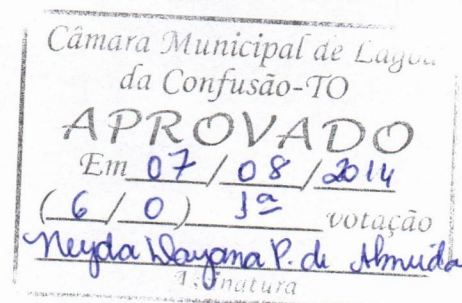 Câmara Municipal de Lagoa
da Confusão-TO
APROVADO
Em 07/08/2014
(6/0) 1ª votação
Neyda Dayana P. de Almeida
Assinatura